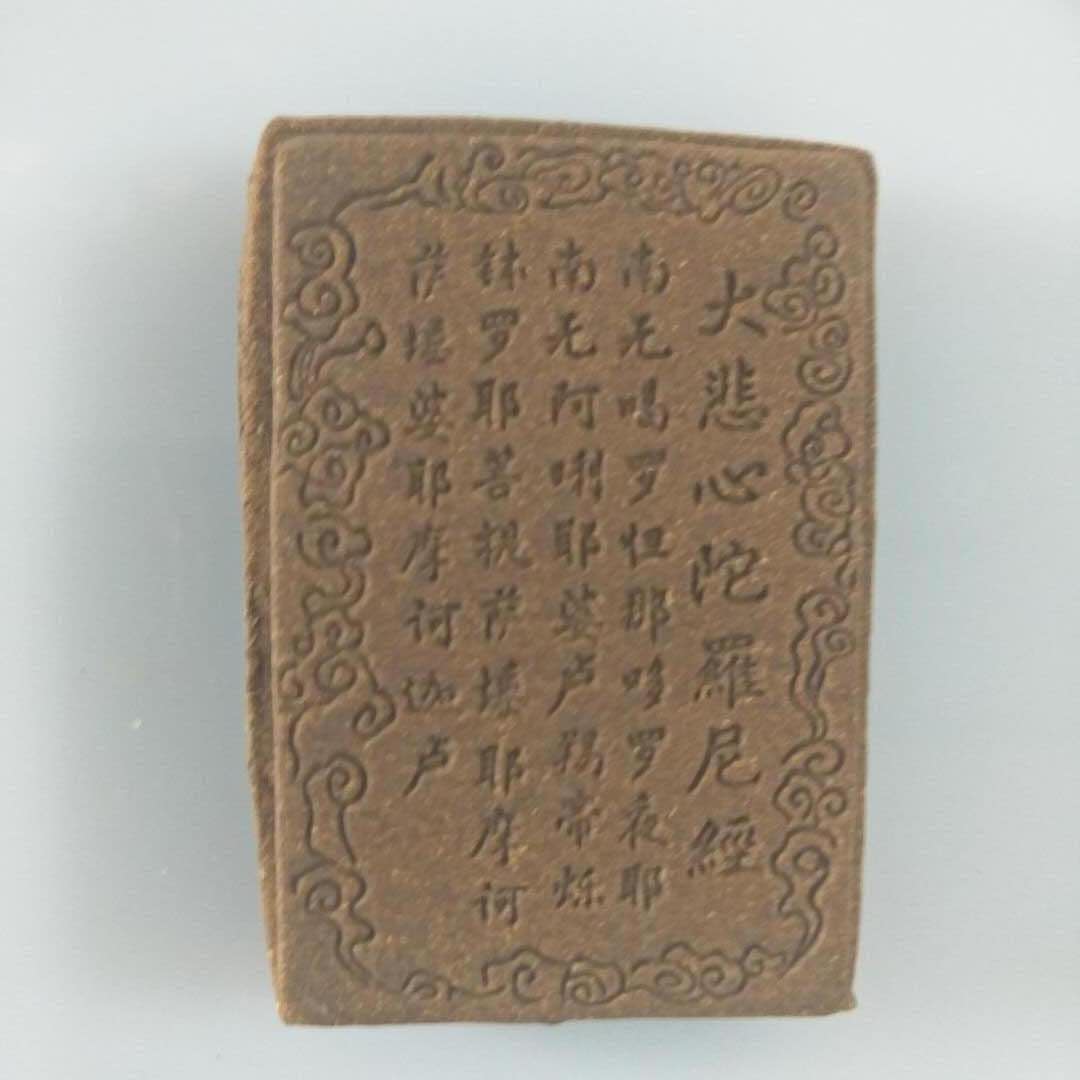 大悲心陀羅尼經
南无喝罗怛那哆罗夜耶
南无阿唎耶婆卢羯帝烁
钵罗耶菩提萨埵耶摩诃
萨埵婆耶摩诃伽卢